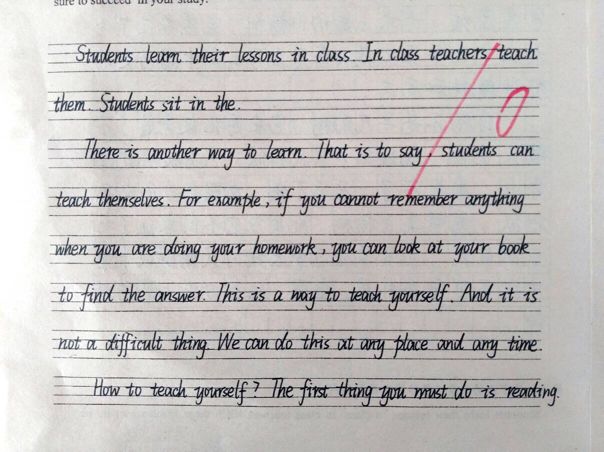 sure to succeed in your study.
Students learn their lessons in class. In class teachers teach
them. Students sit in the.
There is another way to learn. That is to say, students can
teach themselves. For example, if you cannot remember anything
when you are doing your homework, you can look at your book
to find the answer. This is a way to teach yourself. And it is
not a difficult thing. We can do this at any place and any time.
How to teach yourself? The first thing you must do is reading.